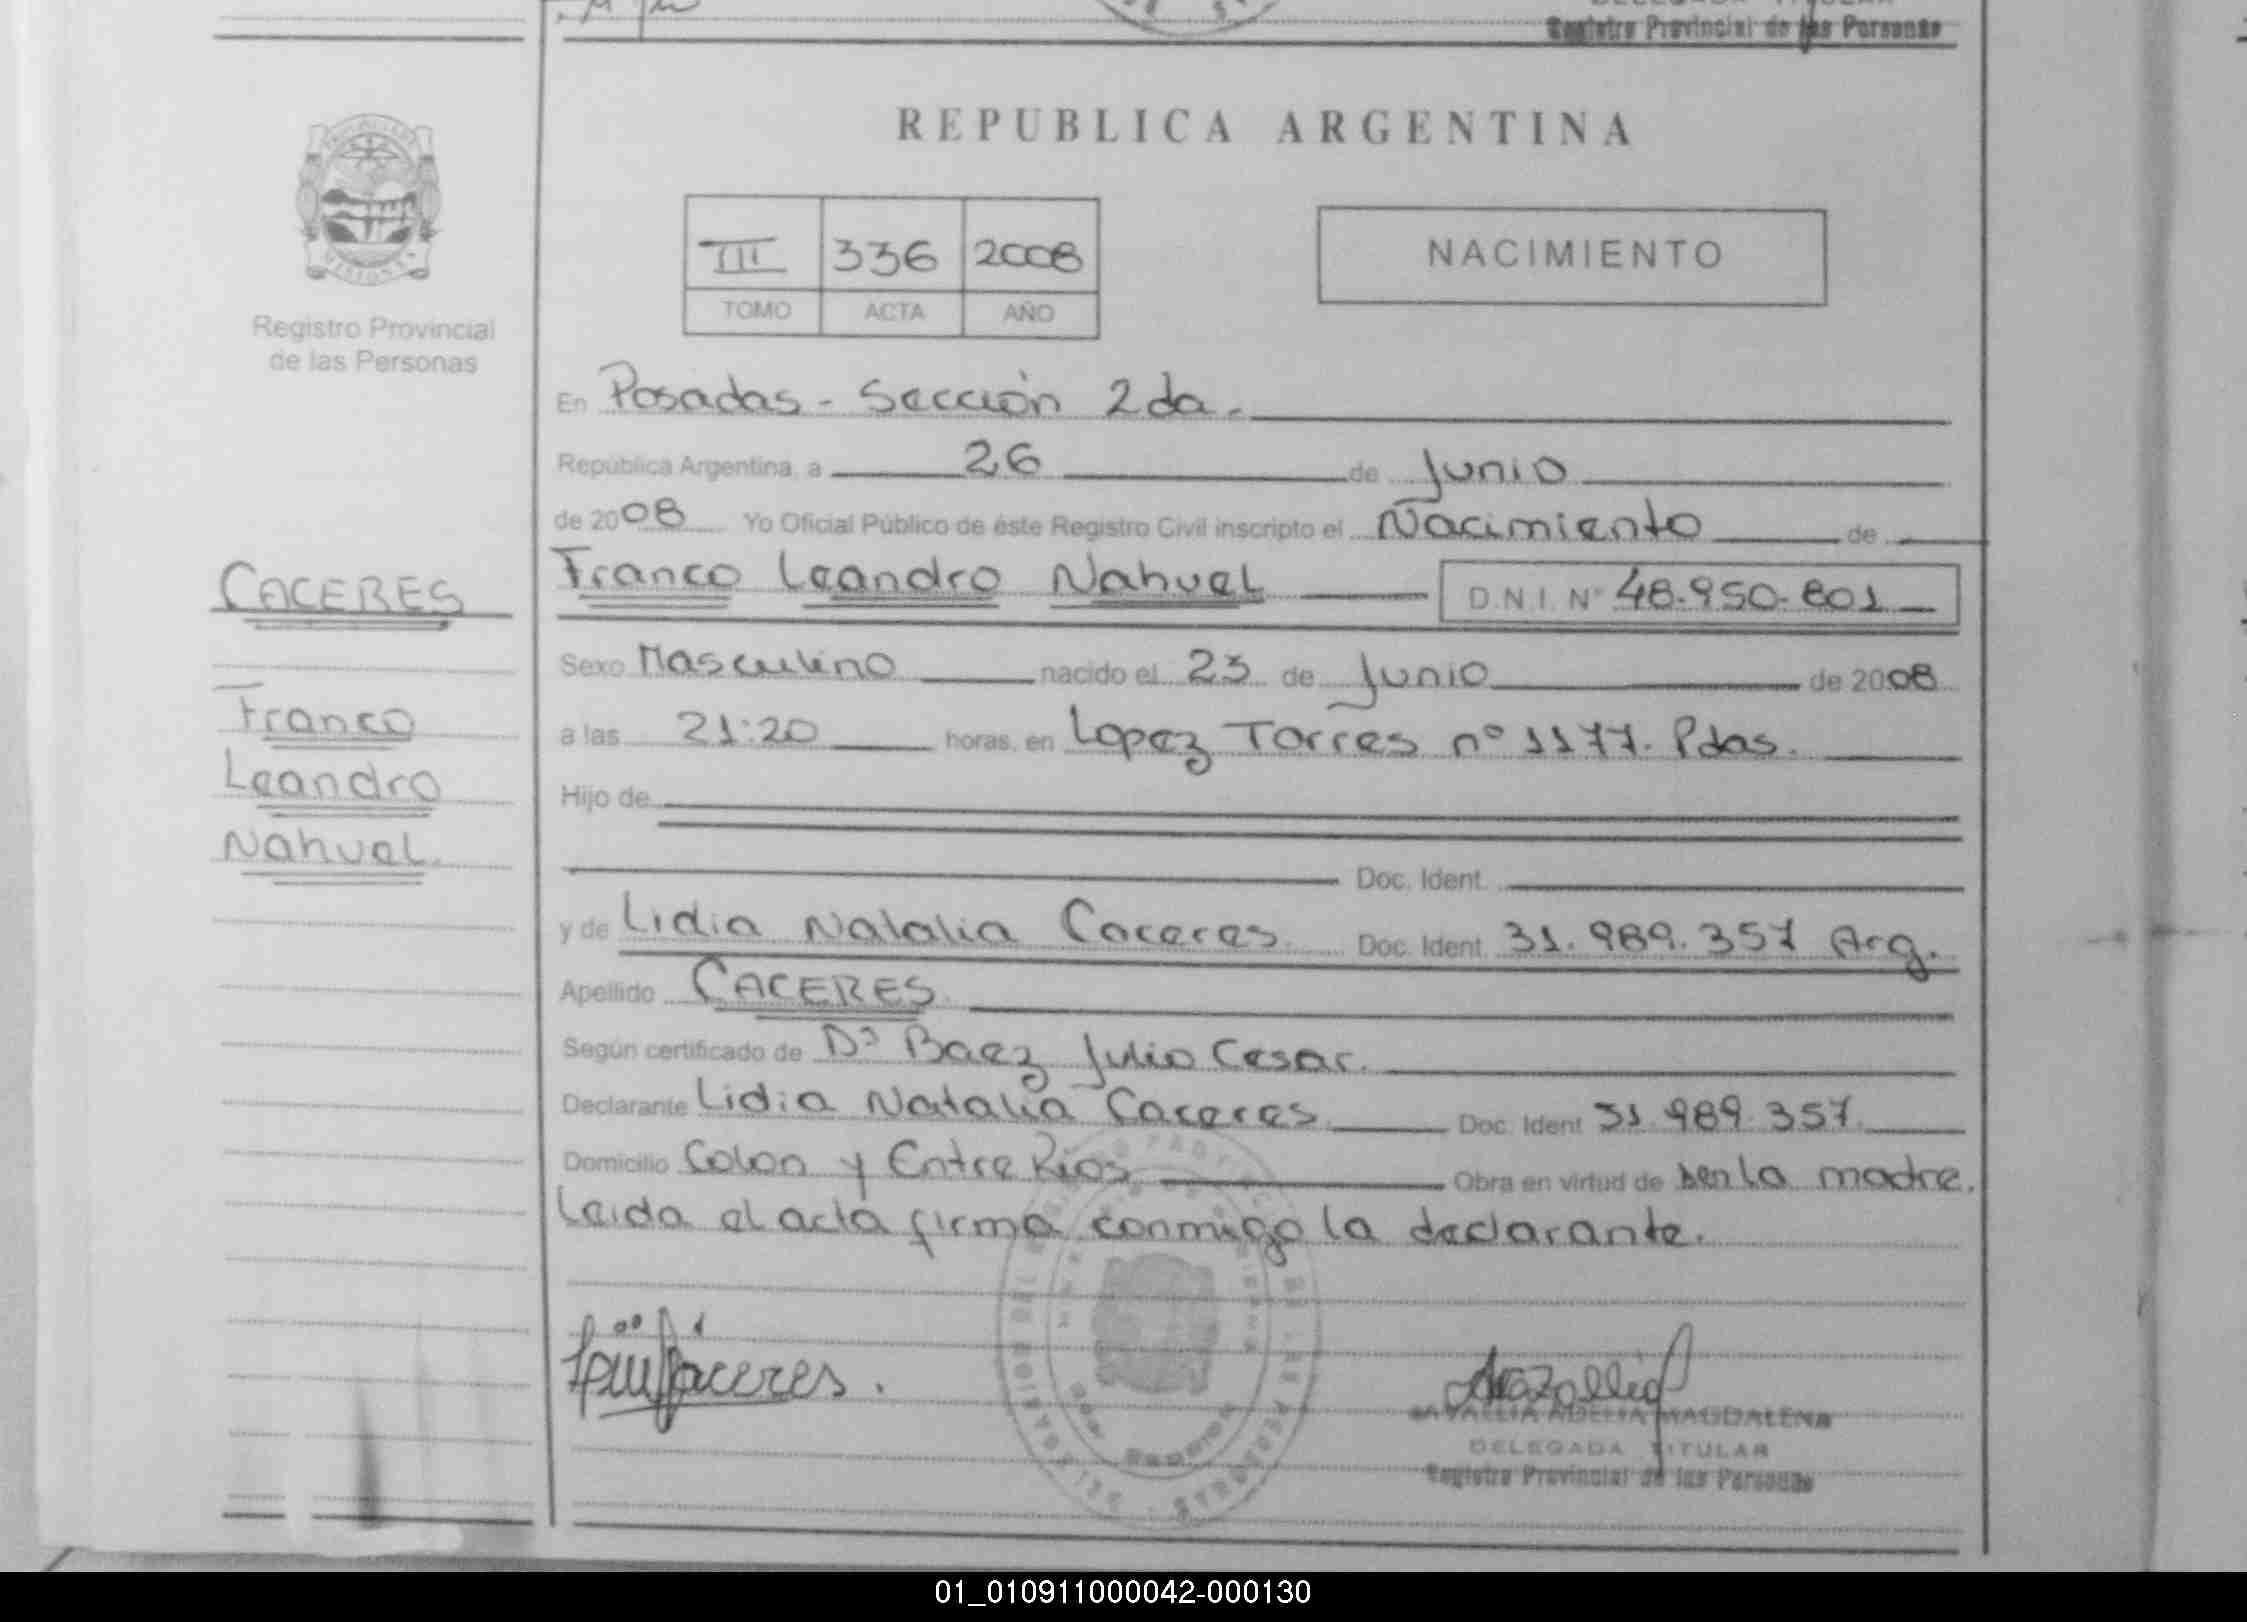 Registro Provincial de las Personas
REPUBLICA ARGENTINA
III 336 2008
TOMO ACTA AÑO
NACIMIENTO
Registro Provincial
de las Personas
En Posadas - Sección 2da.
República Argentina, a 26 de Junio
de 2008 Yo Oficial Público de éste Registro Civil inscripto el Nacimiento de
CACERES
Franco Leandro Nahuel D.N.I. Nº 48.950.801
Sexo Masculino nacido el 23 de Junio de 2008
Franco
Leandro
Nahuel.
a las 21:20 horas, en Lopez Torres nº 1177. Pdas.
Hijo de
Doc. Ident.
y de Lidia Natalia Caceres. Doc. Ident. 31.989.357 Arg.
Apellido CACERES.
Según certificado de Dr Baez Julio Cesar.
Declarante Lidia Natalia Caceres. Doc. Ident 31.989.357.
Domicilio Colon y Entre Rios Obra en virtud de ser la madre.
Leida el acta firma conmigo la declarante.
Caceres.
ADELIA MAGDALENA
DELEGADA TITULAR
Registro Provincial de las Personas
01_010911000042-000130